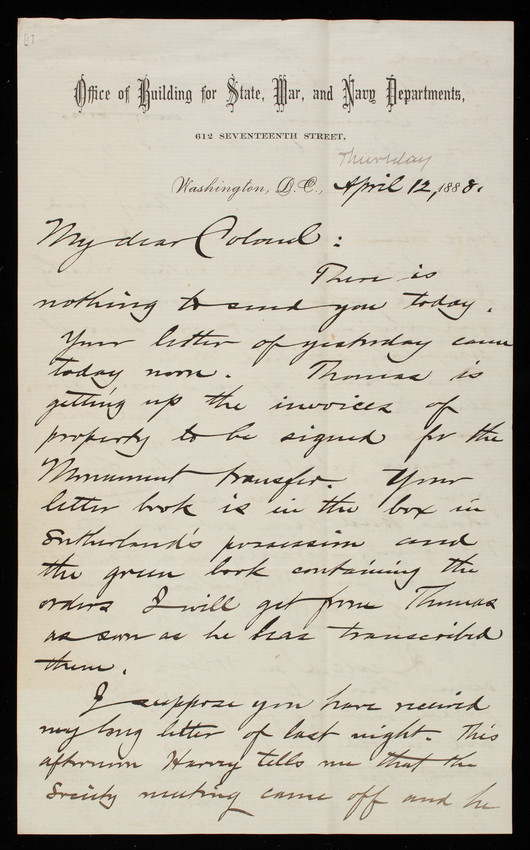 Office of Building for State, War, and Navy Departments,
612 SEVENTEENTH STREET,
Thursday
Washington, D.C., April 12, 1888.
My dear Colonel:
There is
nothing to send you today.
Your letter of yesterday came
today noon. Thomas is
getting up the invoices of
property to be signed for the
Monument transfer. Your
letter book is in the box in
Sutherland's possession and
the green book containing the
orders I will get from Thomas
as soon as he has transcribed
them.
I suppose you have received
my long letter of last night. This
afternoon Harvey tells me that the
Society meeting came off and he